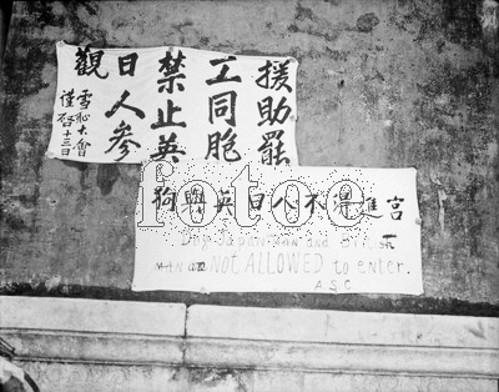 援助罷
工同胞
禁止英
日人參
觀
雪恥大會
謹啓十三日
狗與英日人不得進宮
Dog Japan man and British
MAN NOT ALLOWED to enter.
A S C
fotoe